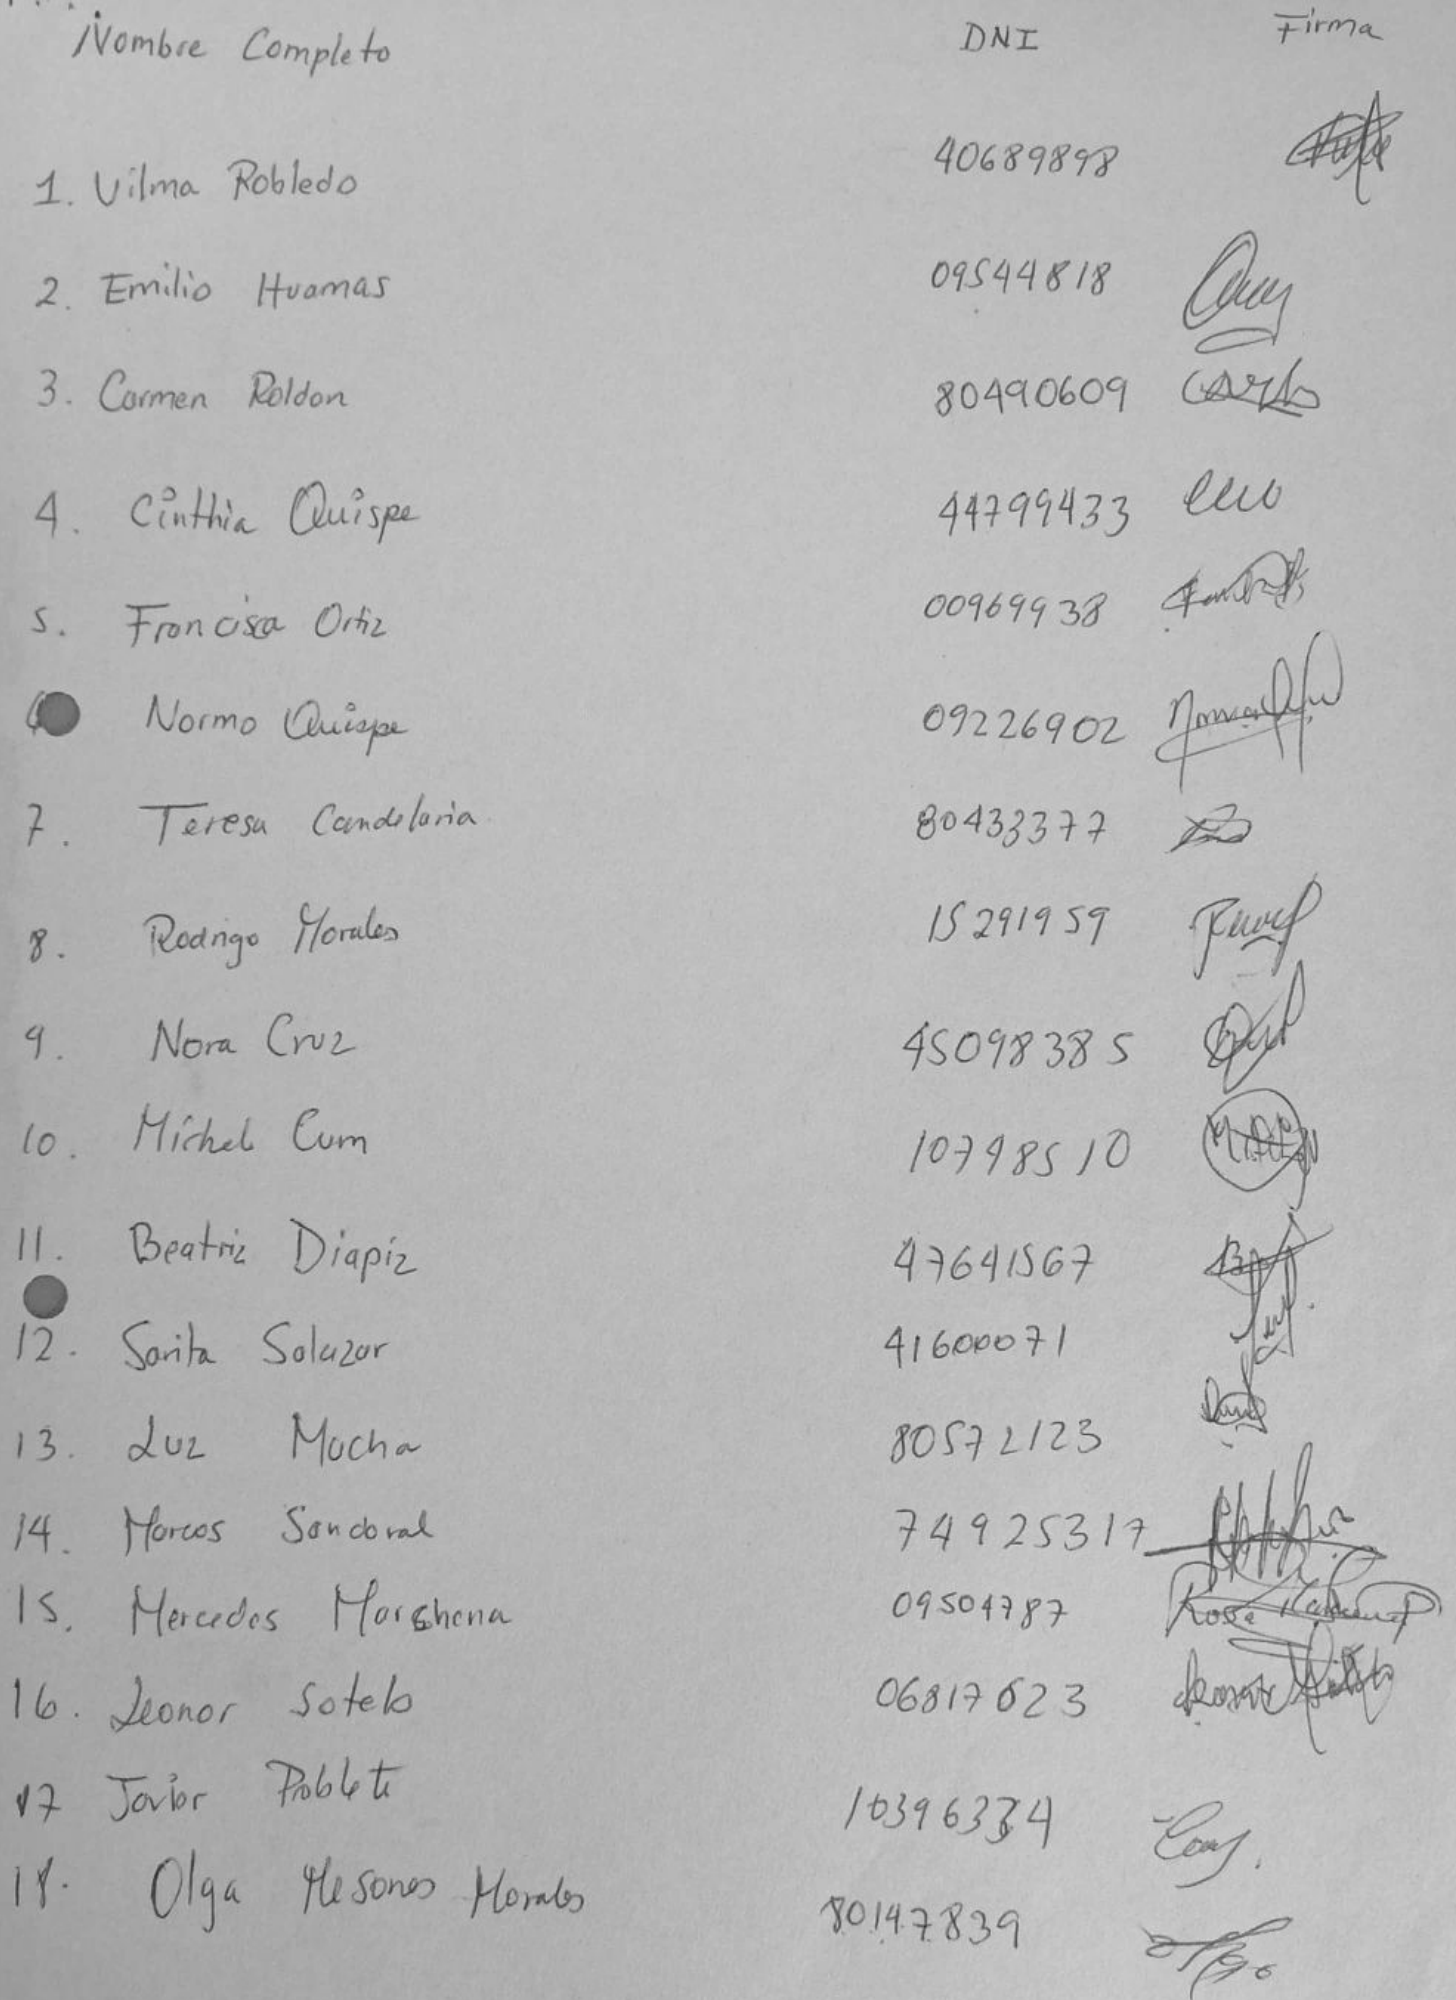 Nombre Completo DNI Firma
1. Vilma Robledo 40689898
2. Emilio Huamas 09544818
3. Carmen Roldan 80490609
4. Cinthia Quispe 44799433
5. Francisca Ortiz 00969938
6 Norma Quispe 09226902
7. Teresa Candelaria 80433377
8. Rodrigo Morales 15291959
9. Nora Cruz 45098385
10. Michel Cum 10798510
11. Beatriz Diapiz 47641567
12. Sarita Salazar 41600071
13. Luz Mucha 80572123
14. Marcos Sandoval 74925317
15. Mercedes 09504787
16. Leonor Sotelo 06817623
17 Javier Poblete 10396334
18. Olga Mesones Morales 80147839